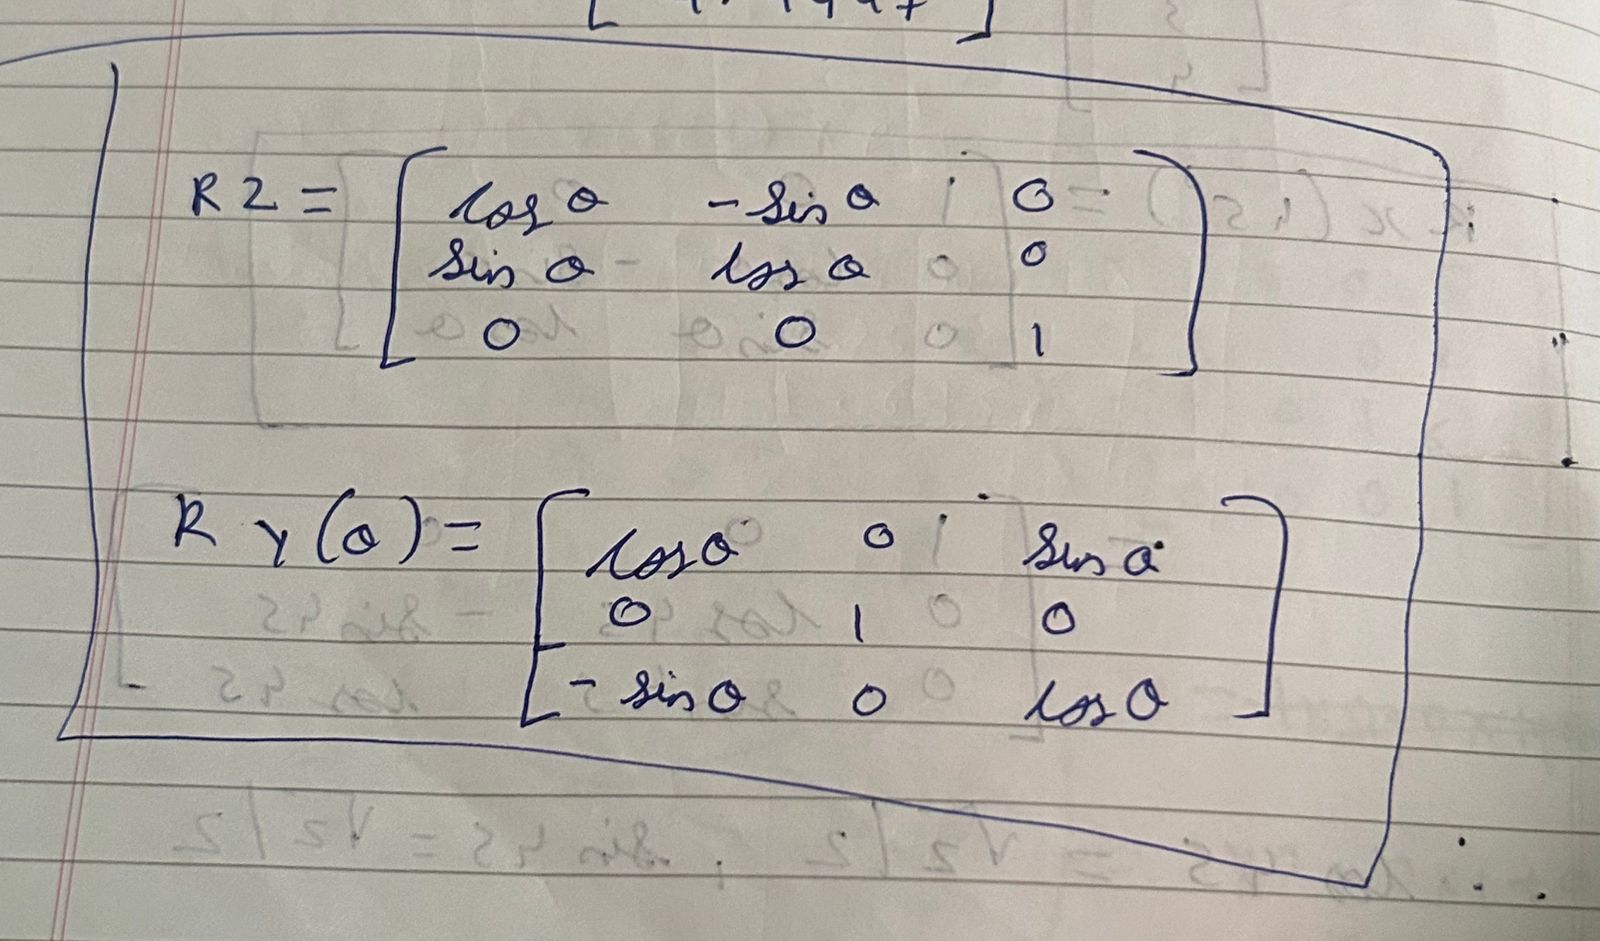 RZ = [ cos θ -sin θ 0
sin θ cos θ 0
0 0 1 ]
R Y(θ) = [ cos θ 0 sin θ
0 1 0
- sin θ 0 cos θ ]